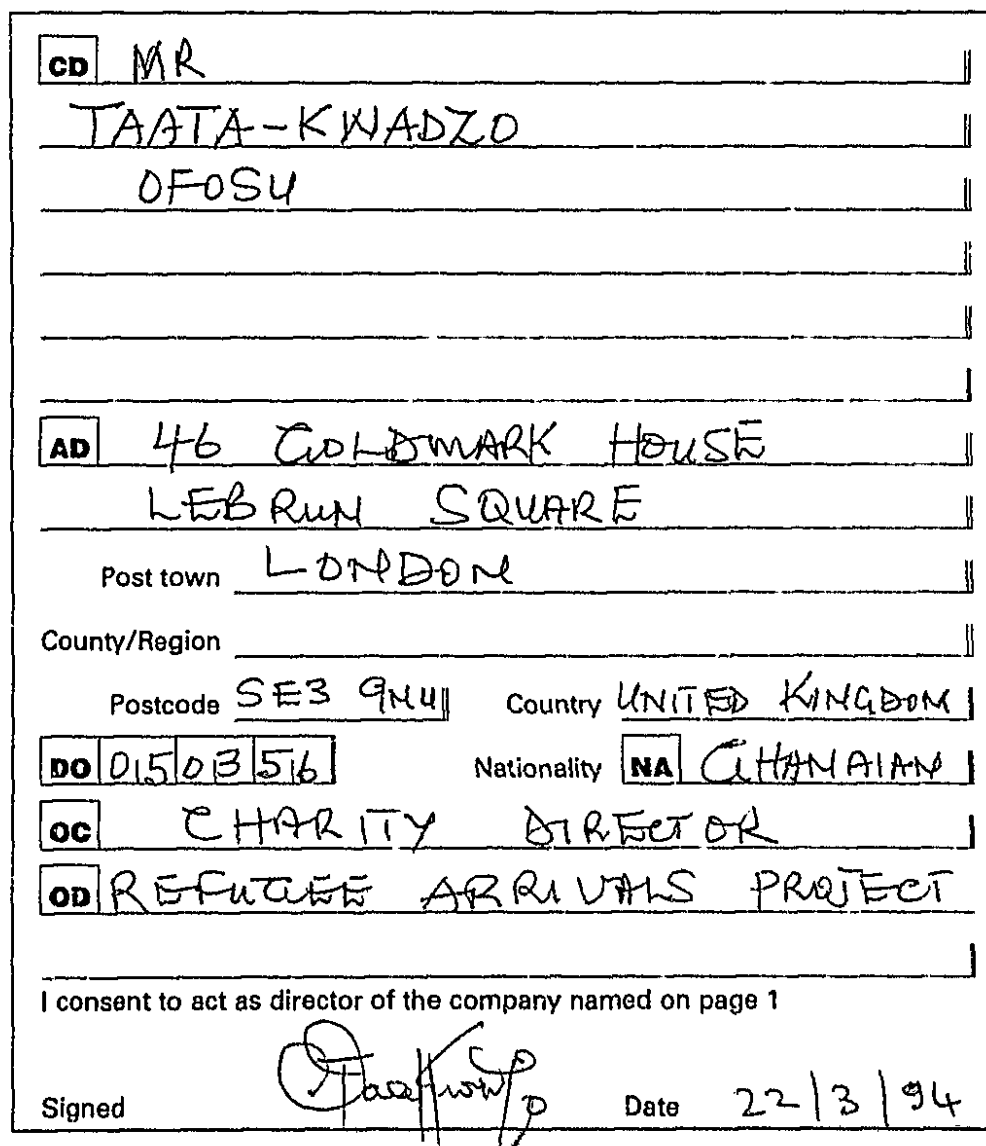 CD MR
TAATA-KWADZO
OFOSU
AD 46 GOLDMARK HOUSE
LEBRUN SQUARE
Post town LONDON
County/Region
Postcode SE3 9NU Country UNITED KINGDOM
DO 01 5 0 3 5 6 Nationality NA GHANAIAN
OC CHARITY DIRECTOR
OD REFUGEE ARRIVALS PROJECT
I consent to act as director of the company named on page 1
Signed Date 22/3/94